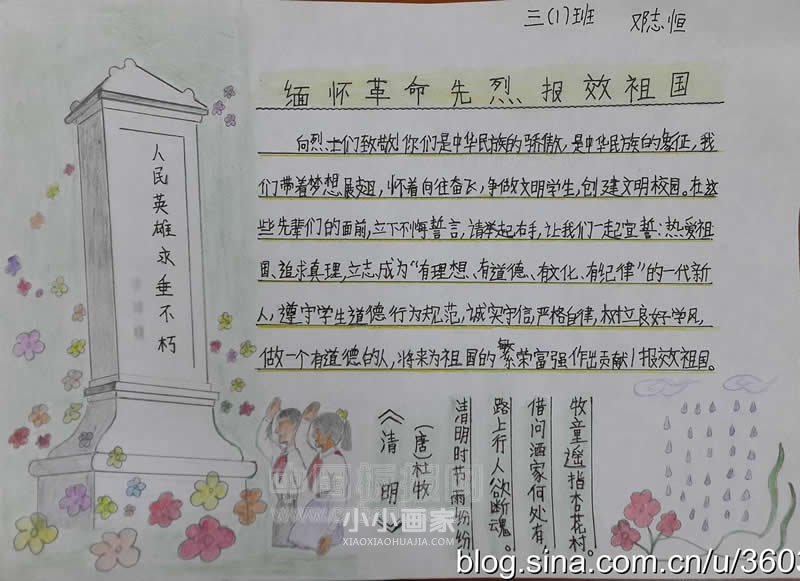 三(1)班 邓志恒
缅怀革命先烈 报效祖国
向烈士们致敬!你们是中华民族的骄傲,是中华民族的象征,我
们带着梦想展翅,怀着向往奋飞,争做文明学生,创建文明校园。在这
些先辈们的面前,立下不悔誓言,请举起右手,让我们一起宣誓:热爱祖
国、追求真理,立志成为“有理想、有道德、有文化、有纪律”的一代新
人,遵守学生道德行为规范,诚实守信,严格自律,树立良好学风,
做一个有道德的人,将来为祖国的繁荣富强作出贡献!报效祖国。
人民英雄永垂不朽
《清明》
(唐)杜牧
清明时节雨纷纷,
路上行人欲断魂。
借问酒家何处有,
牧童遥指杏花村。
小小画家
XIAOXIAOHUAJIA.COM
blog.sina.com.cn/u/3603